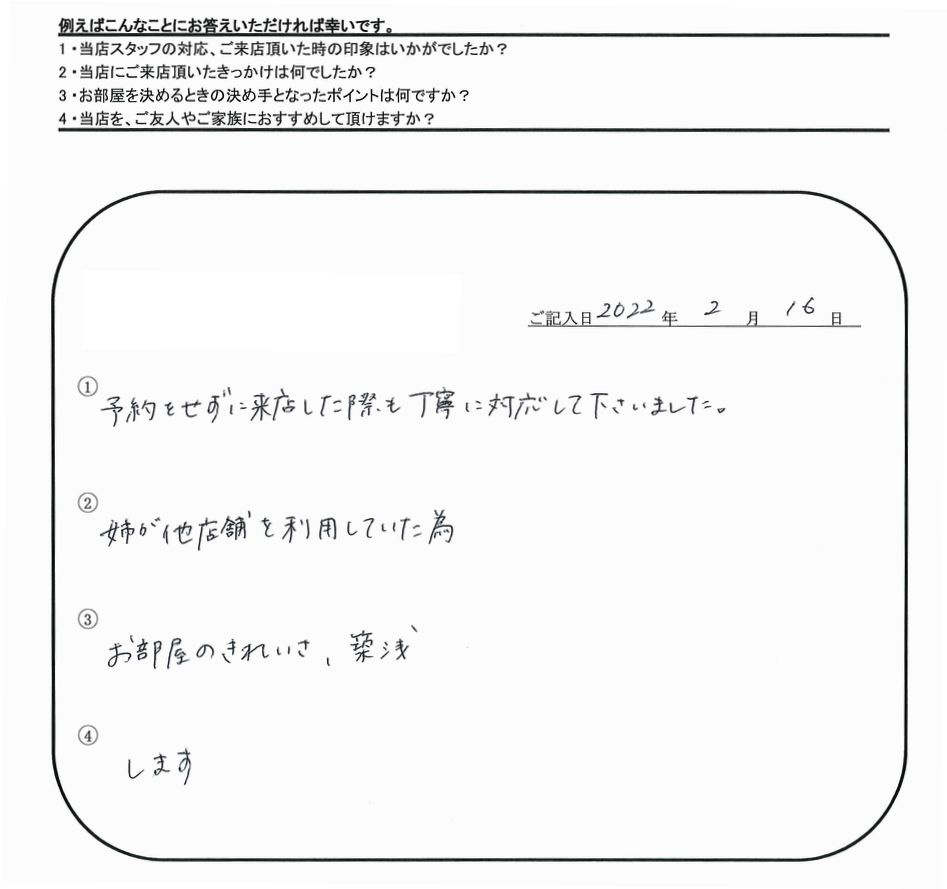 例えばこんなことにお答えいただければ幸いです。
1・当店スタッフの対応、ご来店頂いた時の印象はいかがでしたか？
2・当店にご来店頂いたきっかけは何でしたか？
3・お部屋を決めるときの決め手となったポイントは何ですか？
4・当店を、ご友人やご家族におすすめして頂けますか？
ご記入日 2022 年 2 月 16 日
① 予約をせずに来店した際も丁寧に対応して下さいました。
② 姉が他店舗を利用していた為
③ お部屋のきれいさ、築浅
④ します